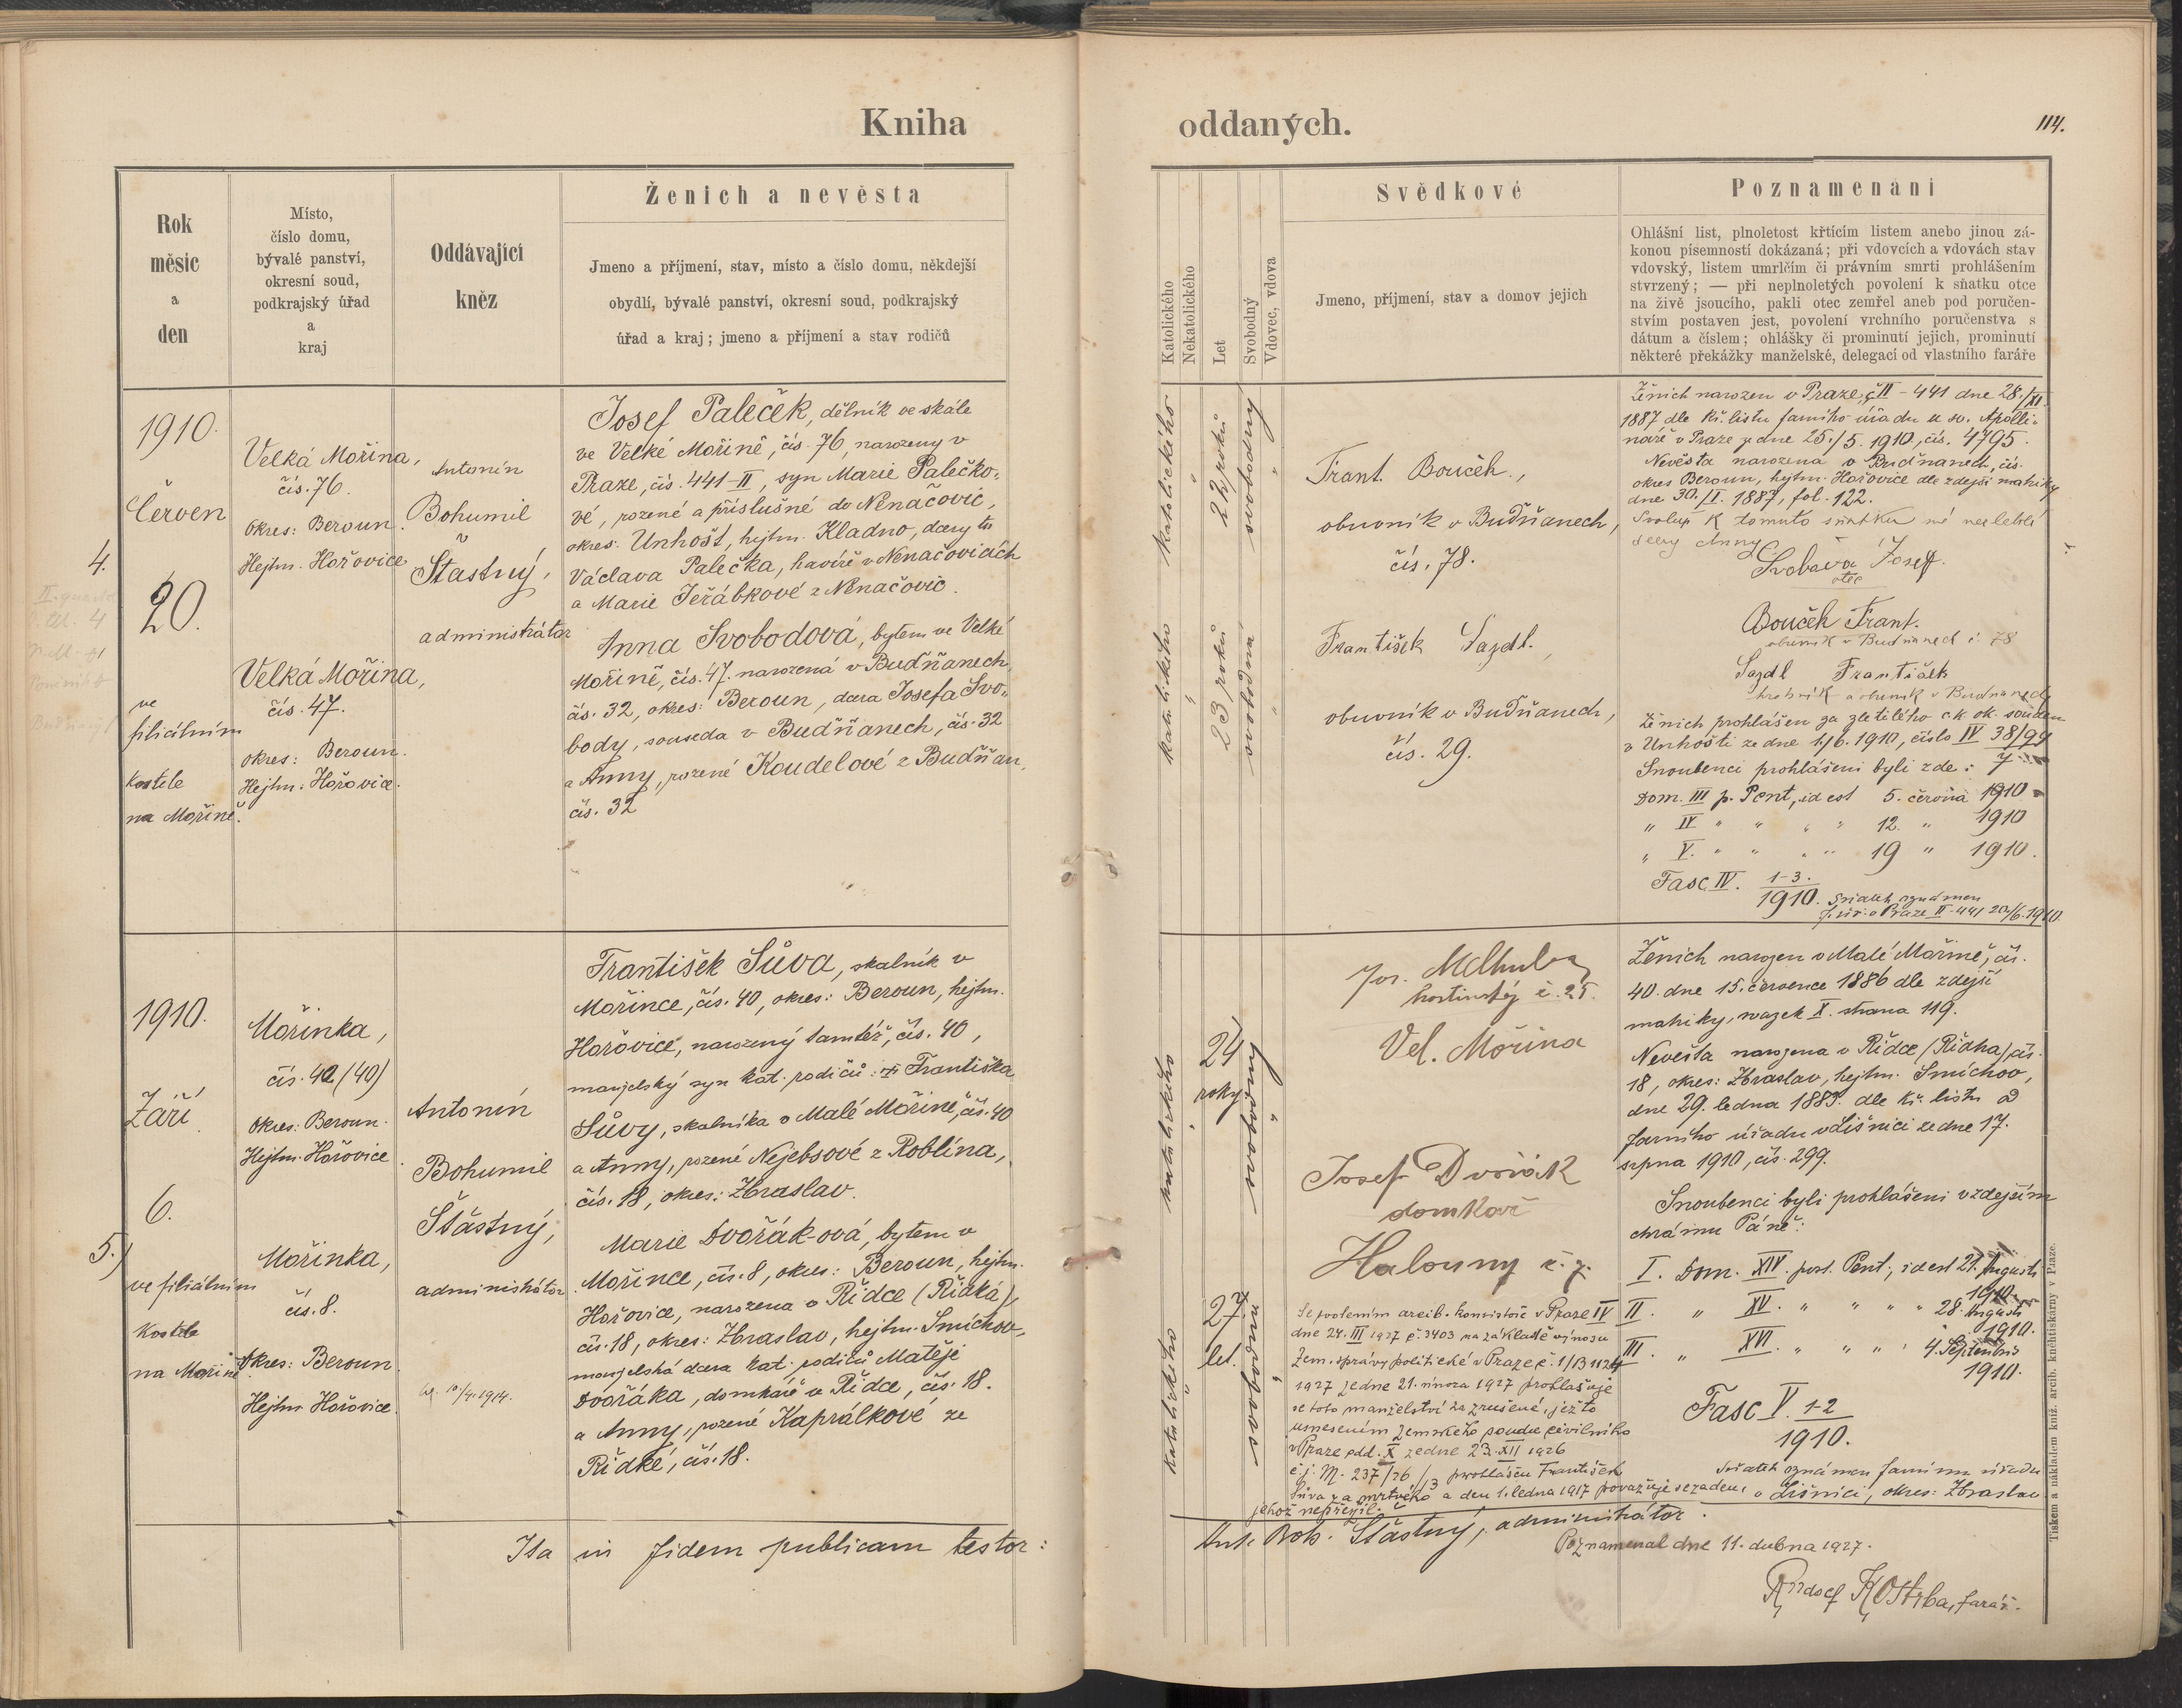 Kniha
oddaných.
114.
Rok
měsíc
a
den
Místo,
číslo domu,
bývalé panství,
okresní soud,
podkrajský úřad
a
kraj
Oddávající
kněz
Ženich a nevěsta
Jmeno a příjmení, stav, místo a číslo domu, někdejší
obydlí, bývalé panství, okresní soud, podkrajský
úřad a kraj; jmeno a příjmení a stav rodičů
Katolického
Nekatolického
Let
Svobodný
Vdovec, vdova
Svědkové
Jmeno, příjmení, stav a domov jejich
Poznamenání
Ohlášní list, plnoletost křtícím listem anebo jinou zá-
konou písemností dokázaná; při vdovcích a vdovách stav
vdovský, listem umrlčím či právním smrti prohlášením
stvrzený; — při neplnoletých povolení k sňatku otce
na živě jsoucího, pakli otec zemřel aneb pod poručen-
stvím postaven jest, povolení vrchního poručenstva s
dátum a číslem; ohlášky či prominutí jejich, prominutí
některé překážky manželské, delegací od vlastního faráře
4.
1910.
Červen
20.
ve
filiálním
kostele
na Mořině.
Velká Mořina,
čís. 76.
Okres: Beroun.
Hejtm. Hořovice
Velká Mořina,
čís. 47.
okres: Beroun.
Hejtm: Hořovice.
Antonín
Bohumil
Šťastný,
administrátor
Josef Paleček, dělník ve skále
ve Velké Mořině, čís. 76, narozený v
Praze, čís. 441-II, syn Marie Palečko-
vé, rozené a příslušné do Nenačovic,
okres: Unhošť, hejtm. Kladno, dcery
Václava Palečka, havíře v Nenačovicích
a Marie Jeřábkové z Nenačovic.
Anna Svobodová, bytem ve Velké
Mořině, čís. 47. narozená v Budňanech,
čís. 32, okres: Beroun, dcera Josefa Svo-
body, souseda v Budňanech, čís. 32
a Anny, rozené Koudelové z Budňan,
čís. 32
katolického
22 roků
svobodný
katolického
23 roků
svobodná
Frant. Bouček,
obuvník v Budňanech,
čís. 78.
František Sazdl.,
obuvník v Budňanech,
čís. 29.
Ženich narozen v Praze, č. II - 441 dne 28./XI.
1887 dle kř. listu farního úřadu u sv. Apolli-
náře v Praze ze dne 25./5. 1910, čís. 4795.
Nevěsta narozena v Budňanech, čís.
okres Beroun, hejtm. Hořovice dle zdejší matriky
dne 30./I. 1887, fol. 122.
Svoluji k tomuto sňatku mé nezletilé
dcery Anny
Svoboda Josef.
otec
Bouček Frant.
obuvník v Budňanech č. 78
Sazdl František
a obuvník v Budňanech
Ženich prohlášen za zletilého c. k. ok. soudem
v Unhošti ze dne 1./6. 1910, číslo IV 38/99
7
Snoubenci prohlášeni byli zde:
Dom. III p. Pent, id est 5. června 1910
" IV " " " " 12. " 1910
" V. " " " " 19 " 1910.
Fasc IV. 1-3.
1910. Sňatek oznámen
f. úř. v Praze II-441 20/6. 1910.
5.)
1910.
Září
6.
ve filiálním
kostele
na Mořině
Mořinka,
čís. 42 (40)
Okres: Beroun.
Hejtm. Hořovice.
Mořinka,
čís. 8.
Okres: Beroun.
Hejtm. Hořovice.
Antonín
Bohumil
Šťastný,
administrátor
10/4. 1914.
František Sůva, skalník v
Mořince, čís. 40, okres: Beroun, hejtm.
Hořovice, narozený tamtéž, čís. 40,
manželský syn kat. rodičů: Františka
Sůvy, skalníka v Malé Mořině, čís. 40
a Anny, rozené Nejebsové z Roblína,
čís. 18, okres: Zbraslav.
Marie Dvořák-ová, bytem v
Mořince, čís. 8, okres: Beroun, hejtm.
Hořovice, narozena v Řídce (Řídká),
čís. 18, okres: Zbraslav, hejtm. Smíchov,
manželská dcera kat. rodičů Matěje
Dvořáka, domkáře v Řídce, čís. 18.
a Anny, rozené Kaprálkové ze
Řídké, čís. 18.
katolického
24
roky
svobodný
katolického
27.
let.
svobodná
Jos.
hostinský č. 25.
Vel. Mořina
Josef Dvořák
domkář
Halouny č. 7.
Se povolením arcib. konsistoře v Praze IV
dne 24. III 1927 č. 3403 na základě výnosu
Zem. správy politické v Praze č. 1/B 1124
1927 ze dne 21. února 1927 prohlašuje
se toto manželství za zrušené, ježto
usnesením zemského soudu civilního
v Praze odd. X ze dne 23. XII 1926
č. j. M. 237/26/13 prohlášen František
Sůva za mrtvého a den 1. ledna 1917 považuje se za den,
jehož nepřežil.
Ženich narozen v Malé Mořině, čís.
40. dne 15. července 1886 dle zdejší
matriky, svazek X. strana 119.
Nevěsta narozena v Řídce (Řidka) čís.
18, okres: Zbraslav, hejtm. Smíchov,
dne 29. ledna 1883. dle kř. listu od
farního úřadu v Líšnici ze dne 17.
srpna 1910, čís. 299.
Snoubenci byli prohlášeni v zdejším
chrámu Páně:
I. Dom. XIV. post. Pent., id est 21. Augusti
1910.
II. " XV. " " " " 28. Augusti
1910.
III. " XVI. " " " " 4. Septembris
1910.
Fasc V. 1-2
1910.
Sňatek oznámen farnímu úřadu
v Líšnici, okres: Zbraslav
Ita in fidem publicam testor:
Ant. Boh. Šťastný, administrátor.
Poznamenal dne 11. dubna 1927.
Rudolf Kostrba, farář.
Tiskem a nákladem kníž. arcib. knihtiskárny v Praze.